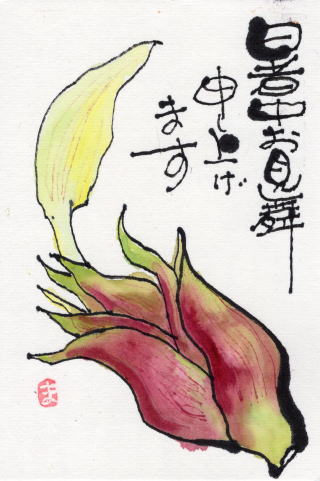 暑中お見舞
申し上げ
ます
ま